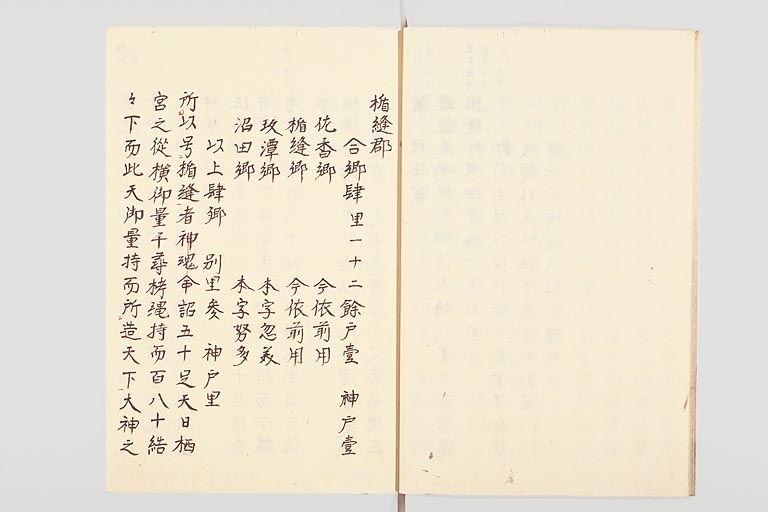 楯縫郡
合郷肆 里一十二 餘戸壹 神戸壹
佐香郷 今依前用
楯縫郷 今依前用
玖潭郷 本字忽美
沼田郷 本字努多
以上肆郷 別里参 神戸里
所以号楯縫者神魂命詔五十足天日栖
宮之從横御量千尋栲縄持而百八十結
々下而此天御量持而所造天下大神之